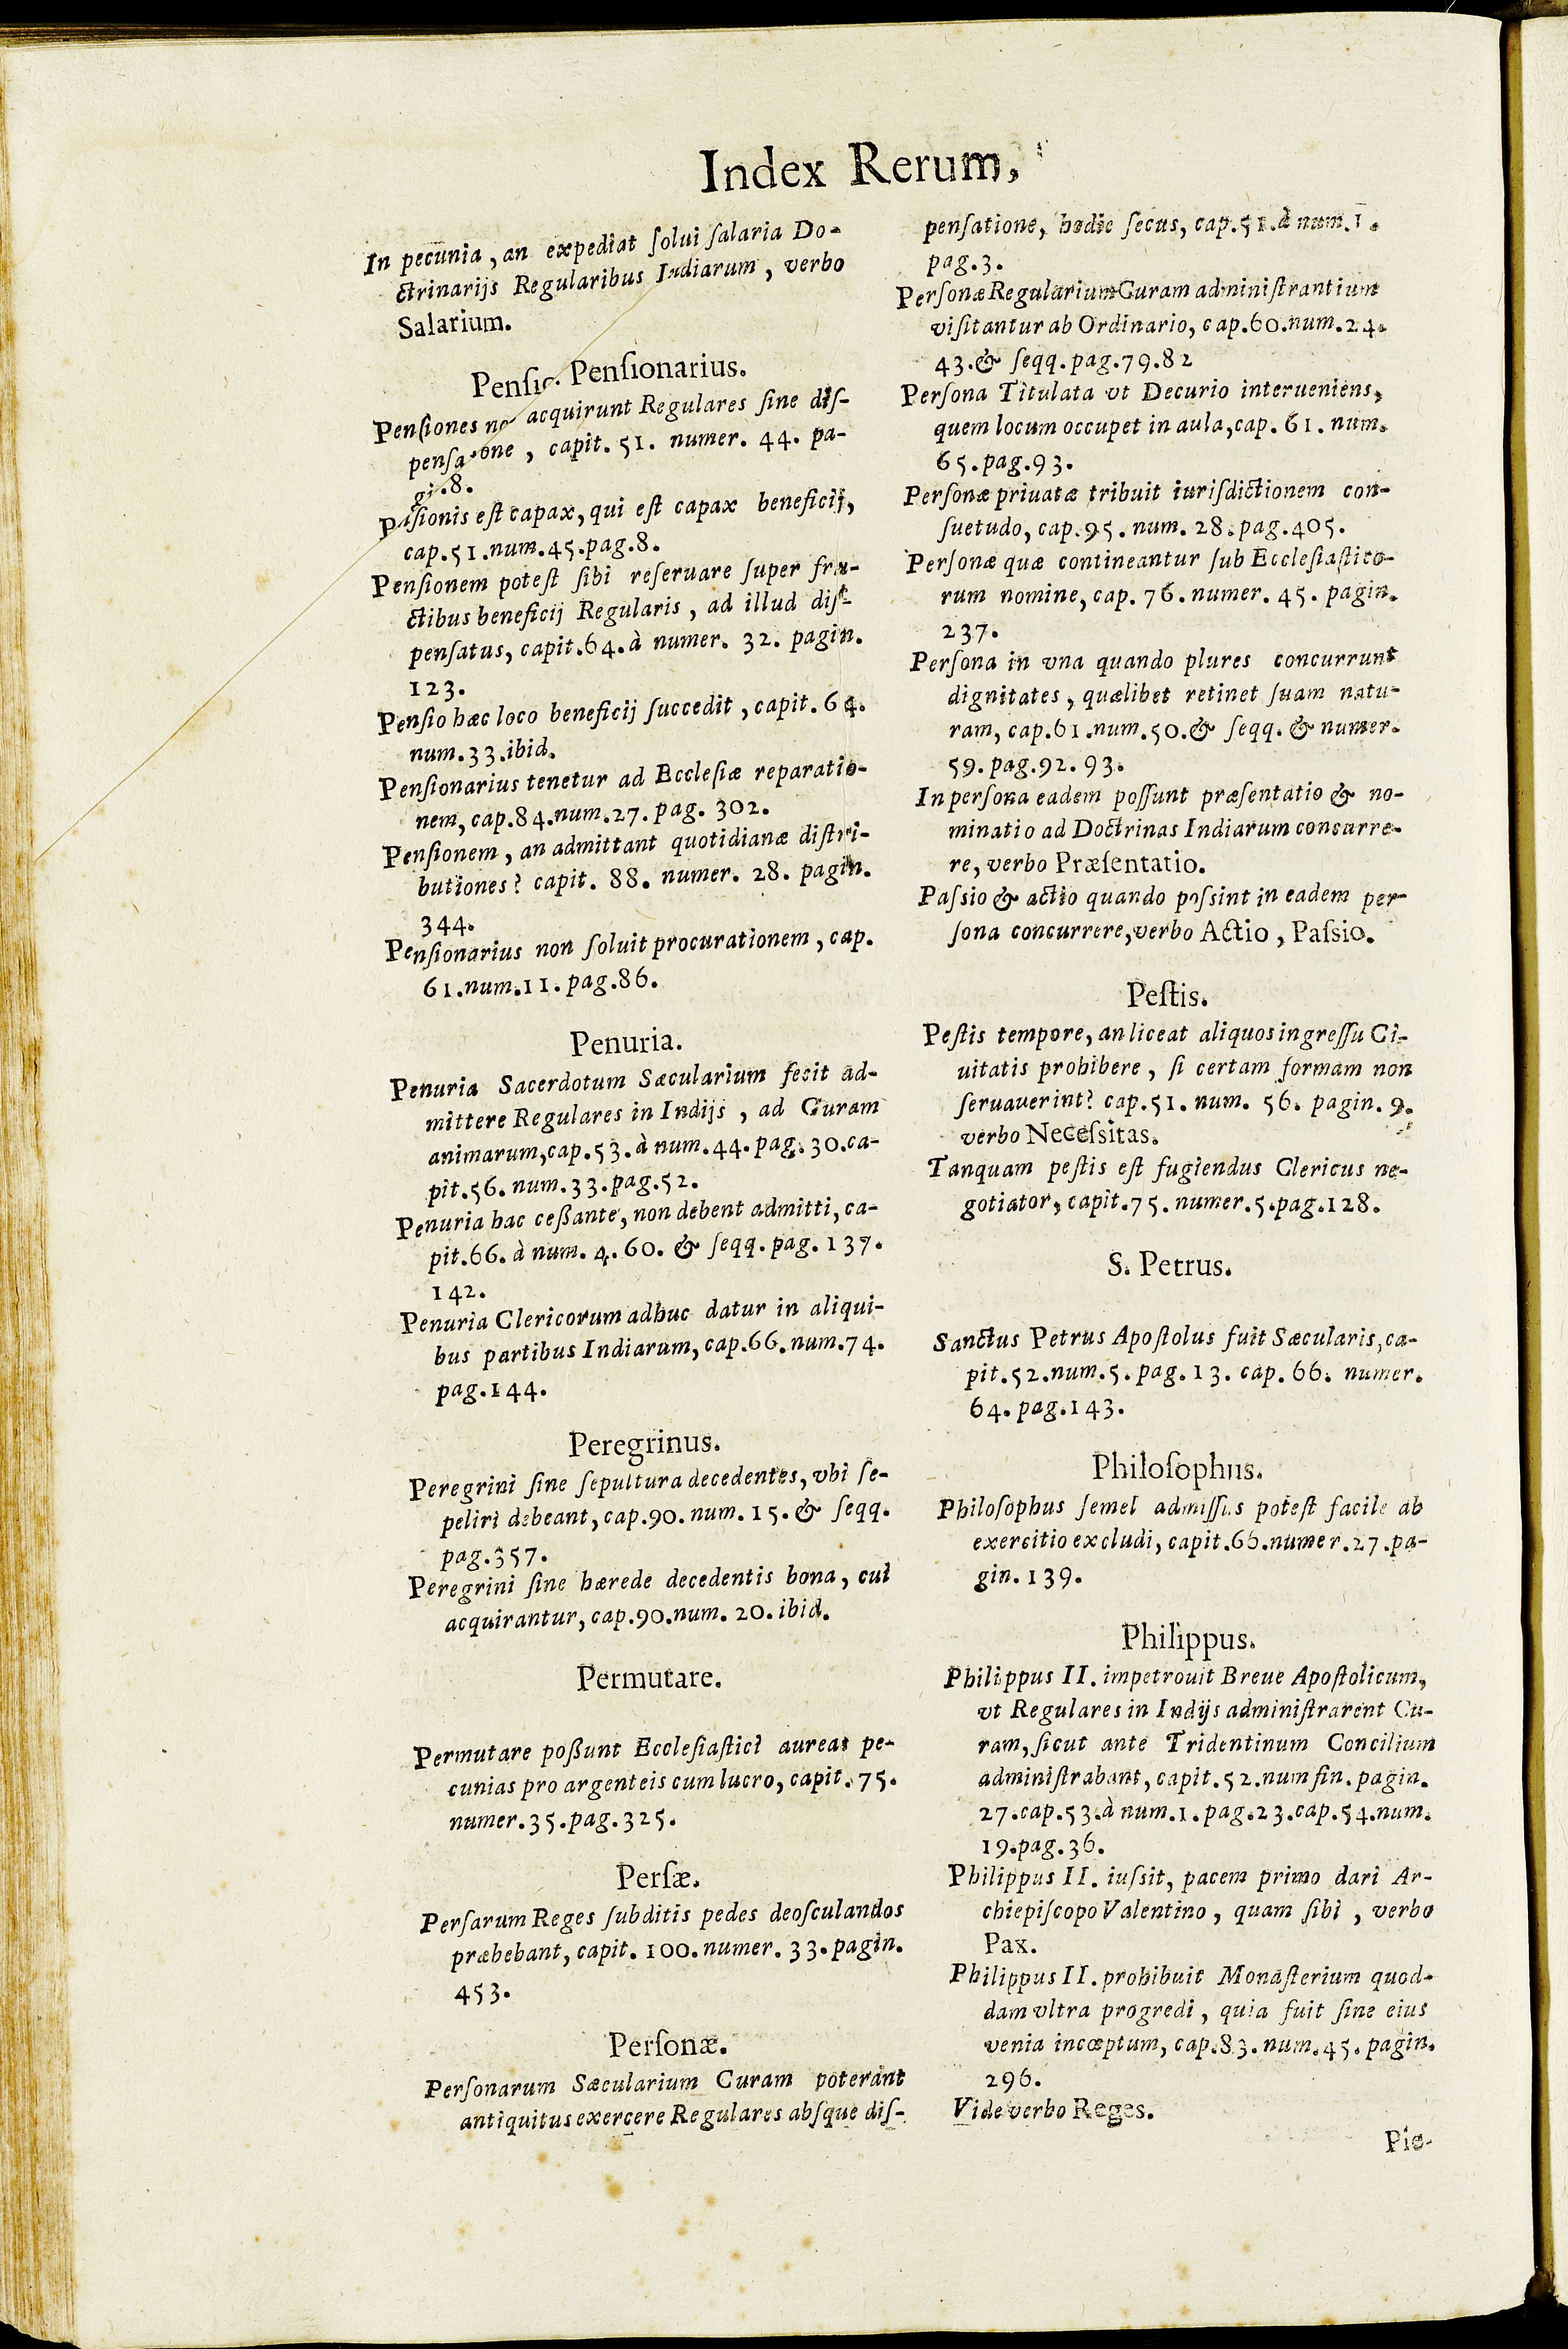 Index Rerum,
In pecunia, an expediat ſolui ſalaria Do-
ctrinarijs Regularibus Indiarum, verbo
Salarium.
Penſio. Penſionarius.
Penſiones non acquirunt Regulares ſine diſ-
penſatione, capit. 51. numer. 44. pa-
gi. 8.
Pēſionis eſt capax, qui eſt capax beneficij,
cap. 51. num. 45. pag. 8.
Penſionem poteſt ſibi reſeruare ſuper fru-
ctibus beneficij Regularis, ad illud diſ-
penſatus, capit. 64. à numer. 32. pagin.
123.
Penſio hæc loco beneficij ſuccedit, capit. 64.
num. 33. ibid.
Penſionarius tenetur ad Eccleſiæ reparatio-
nem, cap. 84. num. 27. pag. 302.
Penſionem, an admittant quotidianæ diſtri-
butiones? capit. 88. numer. 28. pagin.
344.
Penſionarius non ſoluit procurationem, cap.
61. num. 11. pag. 86.
Penuria.
Penuria Sacerdotum Sæcularium fecit ad-
mittere Regulares in Indijs, ad Curam
animarum, cap. 53. à num. 44. pag. 30. ca-
pit. 56. num. 33. pag. 52.
Penuria hac ceßante, non debent admitti, ca-
pit. 66. à num. 4. 60. & ſeqq. pag. 137.
142.
Penuria Clericorum adhuc datur in aliqui-
bus partibus Indiarum, cap. 66. num. 74.
pag. 144.
Peregrinus.
Peregrini ſine ſepultura decedentes, vbi ſe-
peliri debeant, cap. 90. num. 15. & ſeqq.
pag. 357.
Peregrini ſine hærede decedentis bona, cui
acquirantur, cap. 90. num. 20. ibid.
Permutare.
Permutare poßunt Eccleſiaſtici aureas pe-
cunias pro argenteis cum lucro, capit. 75.
numer. 35. pag. 325.
Perſæ.
Perſarum Reges ſubditis pedes deoſculandos
præbebant, capit. 100. numer. 33. pagin.
453.
Perſonæ.
Perſonarum Sæcularium Curam poterant
antiquitus exercere Regulares abſque diſ-
penſatione, hodie ſecus, cap. 51. à num. 1.
pag. 3.
Perſonæ Regularium Curam adminiſtrantium
viſitantur ab Ordinario, cap. 60. num. 24.
43. & ſeqq. pag. 79. 82
Perſona Titulata vt Decurio interueniens,
quem locum occupet in aula, cap. 61. num.
65. pag. 93.
Perſonæ priuatæ tribuit iuriſdictionem con-
ſuetudo, cap. 95. num. 28. pag. 405.
Perſonæ quæ contineantur ſub Eccleſiaſtico-
rum nomine, cap. 76. numer. 45. pagin.
237.
Perſona in vna quando plures concurrunt
dignitates, quælibet retinet ſuam natu-
ram, cap. 61. num. 50. & ſeqq. & numer.
59. pag. 92. 93.
In perſona eadem poſſunt præſentatio & no-
minatio ad Doctrinas Indiarum concurre-
re, verbo Præſentatio.
Paſsio & actio quando poſsint in eadem per-
ſona concurrere, verbo Actio, Paſsio.
Peſtis.
Peſtis tempore, an liceat aliquos ingreſſu Ci-
uitatis prohibere, ſi certam formam non
ſeruauerint? cap. 51. num. 56. pagin. 9.
verbo Neceſsitas.
Tanquam peſtis eſt fugiendus Clericus ne-
gotiator, capit. 75. numer. 5. pag. 128.
S. Petrus.
Sanctus Petrus Apoſtolus fuit Sæcularis, ca-
pit. 52. num. 5. pag. 13. cap. 66. numer.
64. pag. 143.
Philoſophus.
Philoſophus ſemel admiſſus poteſt facile ab
exercitio excludi, capit. 66. numer. 27. pa-
gin. 139.
Philippus.
Philippus II. impetrouit Breue Apoſtolicum,
vt Regulares in Indijs adminiſtrarent Cu-
ram, ſicut ante Tridentinum Concilium
adminiſtrabant, capit. 52. num fin. pagin.
27. cap. 53. à num. 1. pag. 23. cap. 54. num.
19. pag. 36.
Philippus II. iuſsit, pacem primo dari Ar-
chiepiſcopo Valentino, quam ſibi, verbo
Pax.
Philippus II. prohibuit Monaſterium quod-
dam vltra progredi, quia fuit ſine eius
venia incœptum, cap. 83. num. 45. pagin.
296.
Vide verbo Reges.
Pie-